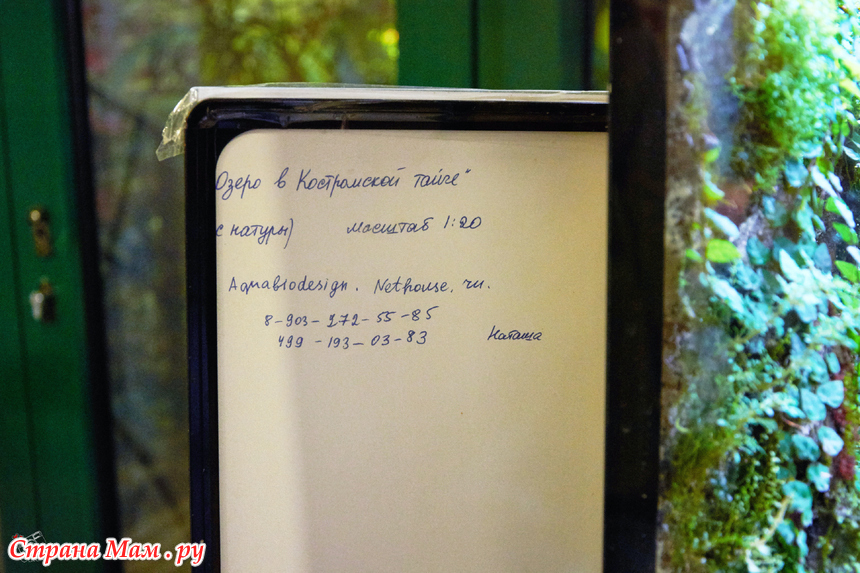 Озеро в Костромской тайге"
с натуры) Масштаб 1:20
Aquabiodesign. Nethouse. ru.
8-903-272-55-85
499-193-03-83 Наташа
Страна Мам.ру